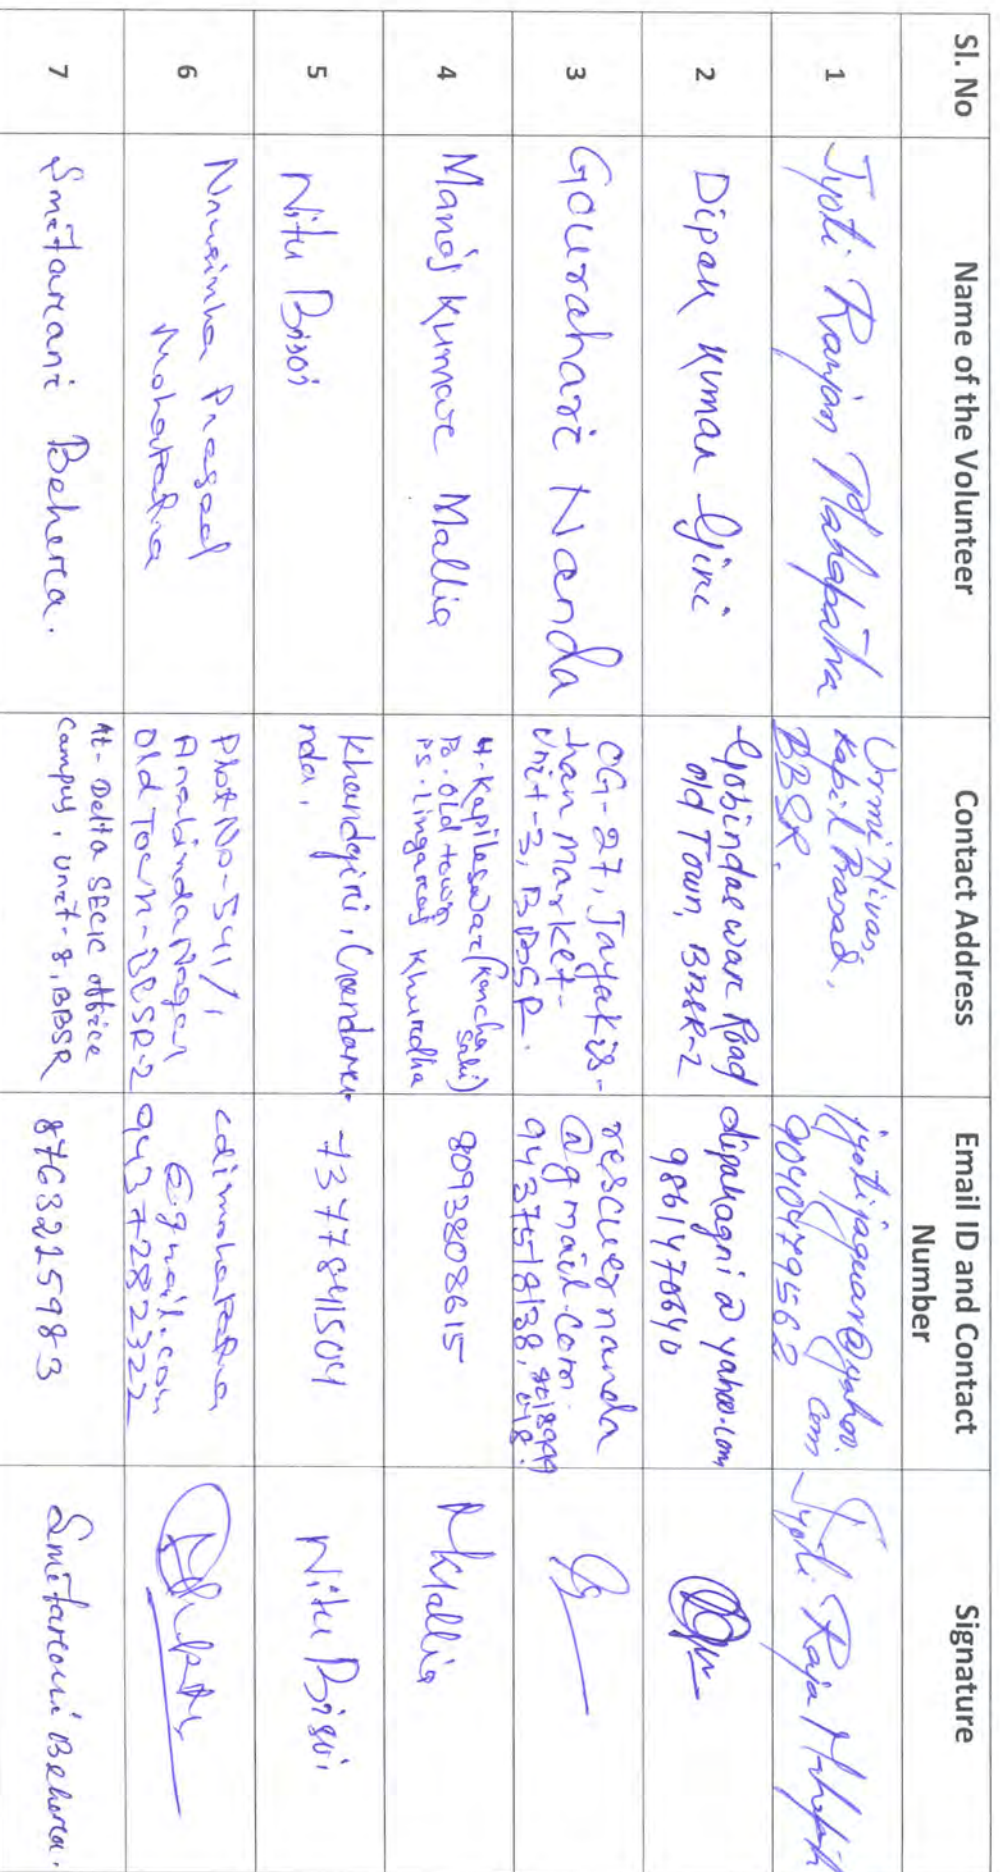 Sl. No Name of the Volunteer Contact Address Email ID and Contact Number Signature
1 Jyoti Ranjan Mahapatra
Urmi Nivas,
Kapil Prasad,
BBSR.
jyotijaguar@yahoo.
com
9040479562
2 Dipak Kumar Giri
Gobindaswar Road
old Town, BBSR-2
dipakagni@yahoo.com
9861470640
3 Gourahari Nanda
CG-27, Jayakis-
han market-
Unit-3, BBSR.
rescuernanda
@gmail.com
9437518138,
4 Manoj Kumar Mallia
At-Kapileswar (Kancha
sahi)
Po-old town
Ps-Lingaraj Khurdha
8093808615
MKMallia
5 Nitu Bisoi
Khandagiri, Gandamu-
nda,
7377841504
Nitu Bisoi
6 Narasinha Prasad
Mohapatra
Plot No-541/1
Arabinda Nagar
Old Town-BBSR-2
cdimohapatra
@gmail.com
9437282322
7 Smitarani Behera.
At-Delta SECIC office
campus, unit-8, BBSR
8763215983
Smitarani Behera.